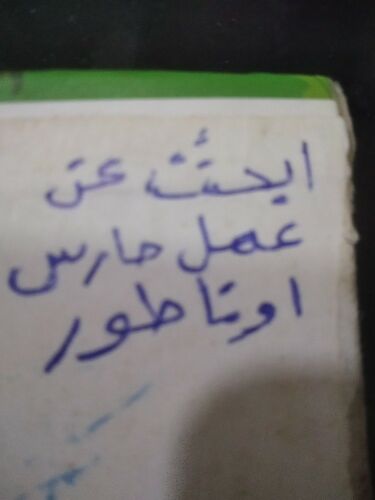 ابحث عن
عمل حارس
اوناطور